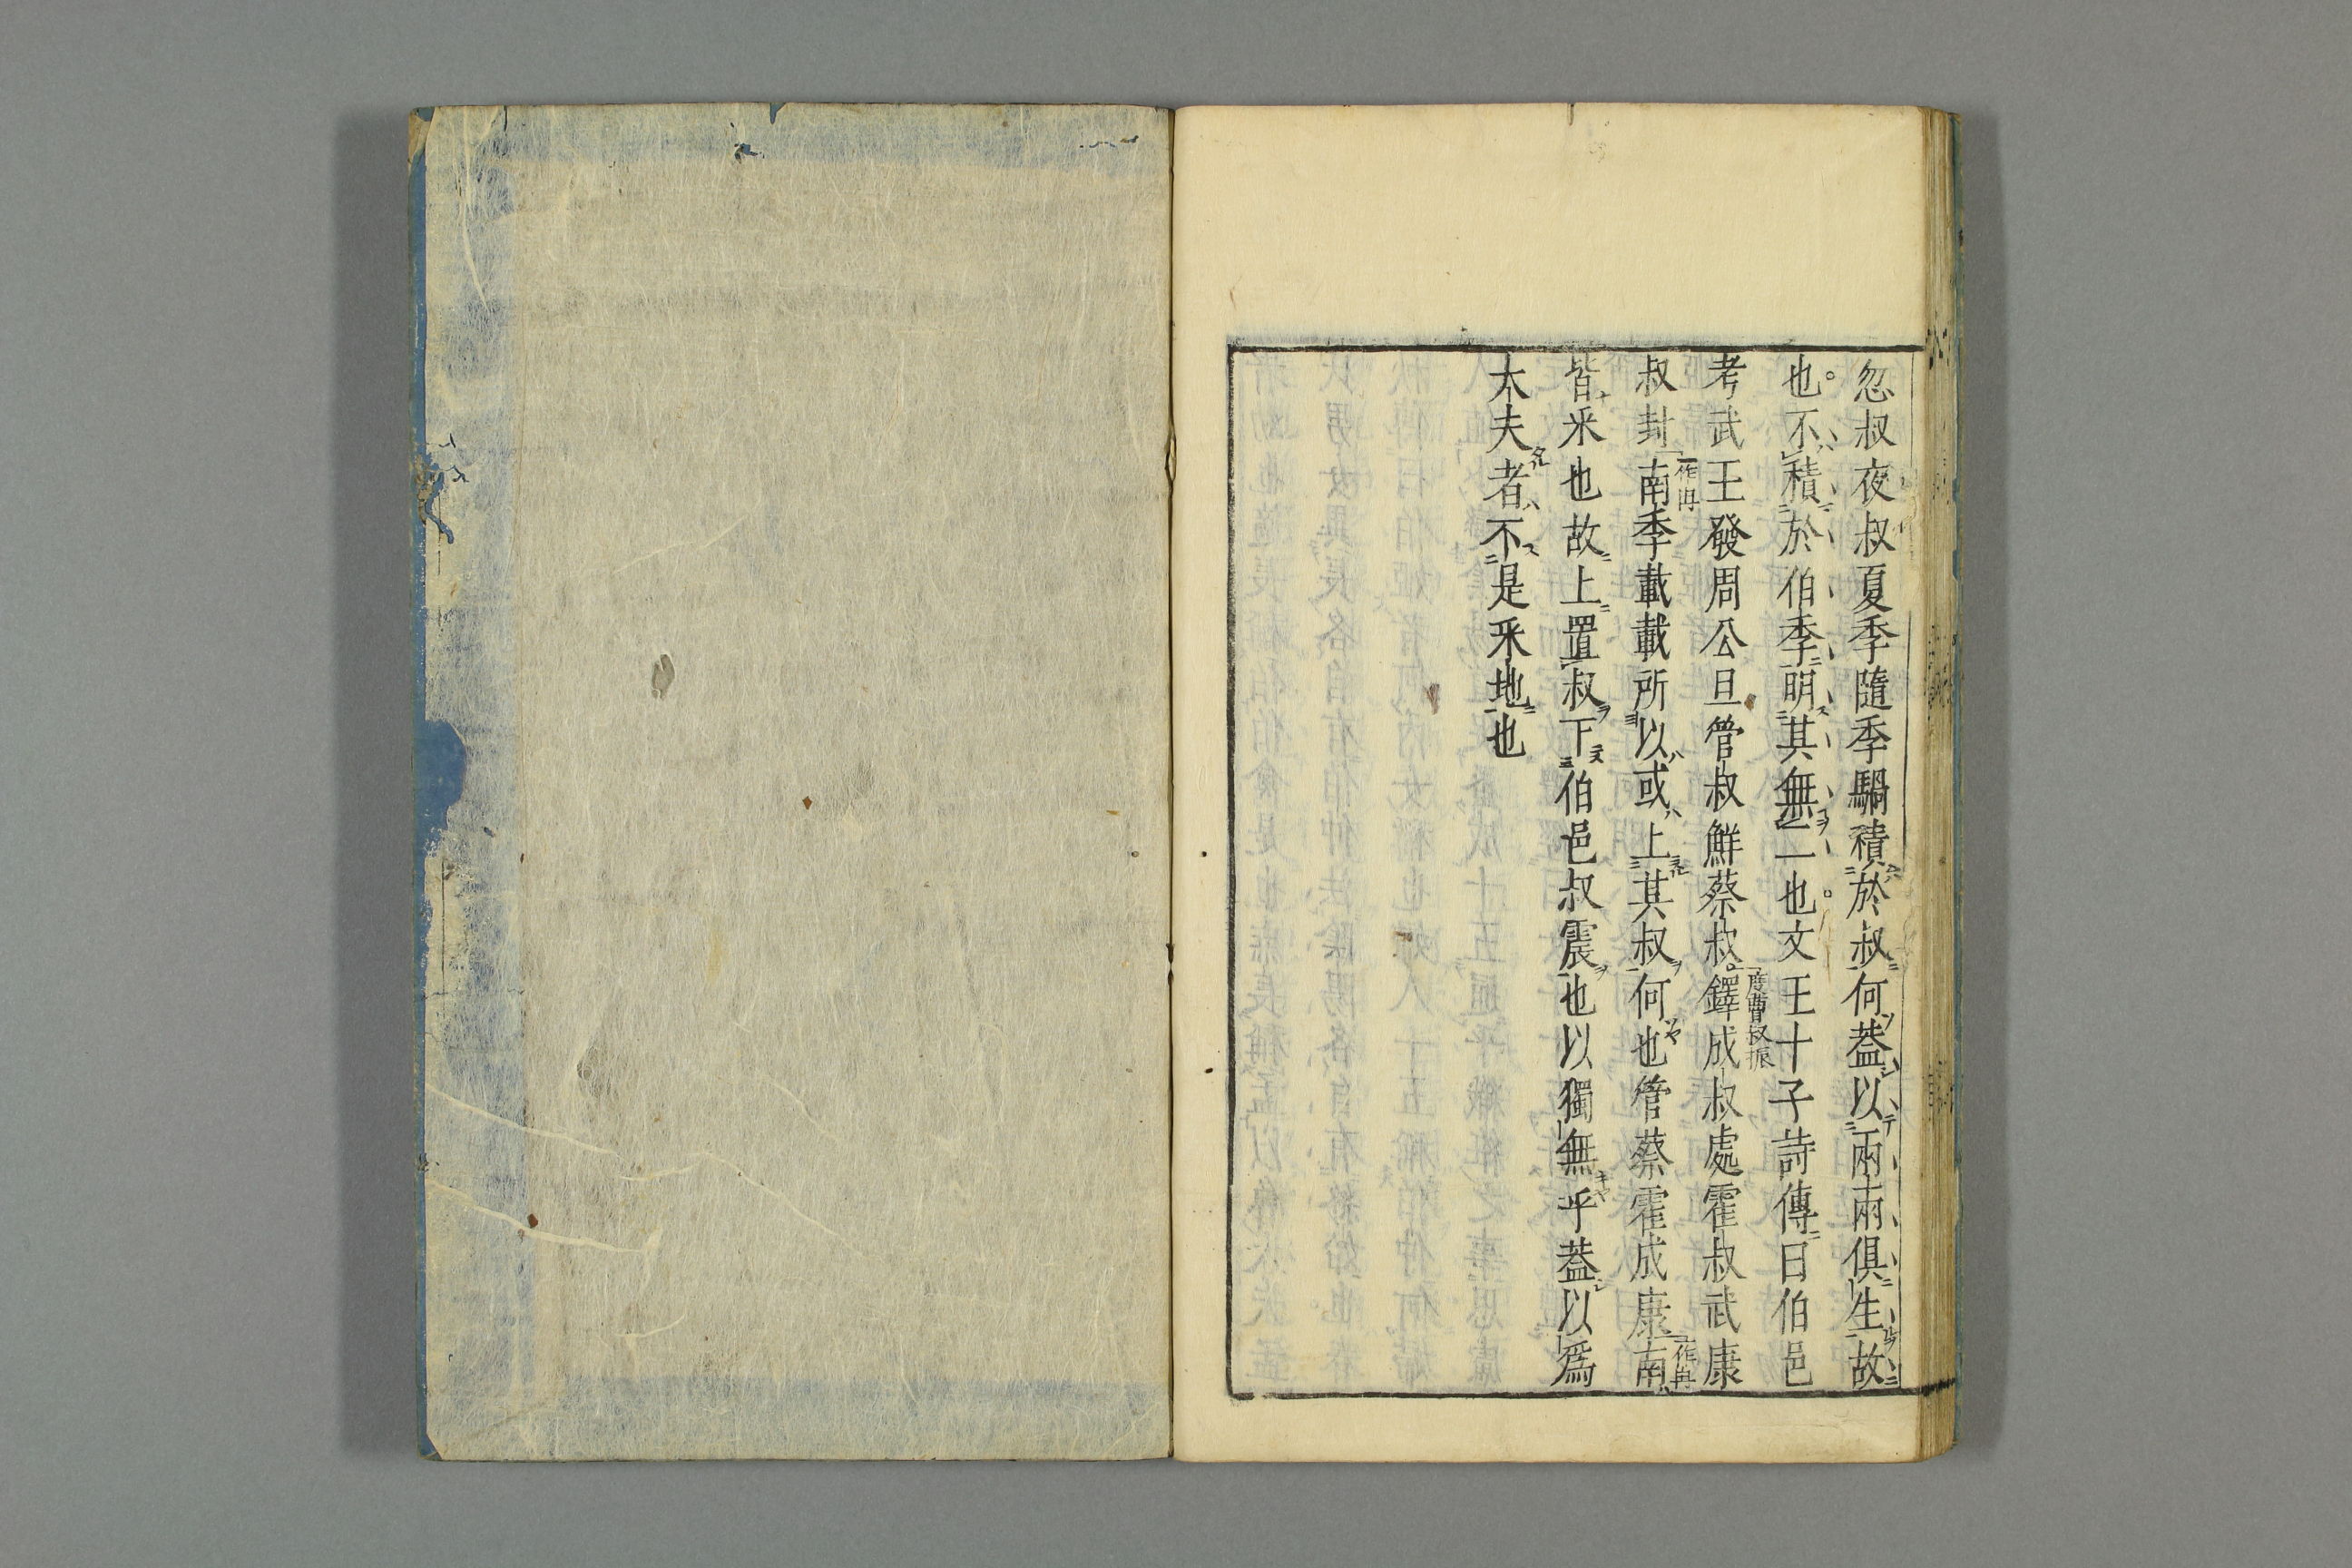 忽叔夜叔夏季隨季騧積於叔何葢以兩兩俱生故
也不積於伯季明其無二也文王十子詩傳曰伯邑
考武王發周公旦管叔鮮蔡叔鐸成叔處霍叔武康
度曹叔振
叔封南季載載所以或上其叔何也管蔡霍成康南
一作冉
一作冉
皆采也故上置叔下伯邑叔震也以獨無乎葢以爲
大夫者不是采地也